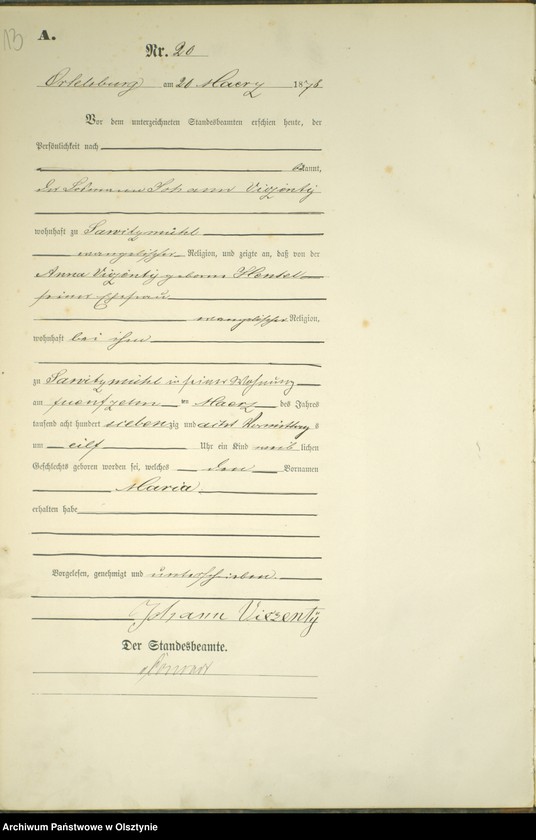 13
A.
Nr. 20
Ortelsburg am 20 Maerz 1878
Vor dem unterzeichneten Standesbeamten erschien heute, der
Persönlichkeit nach
kannt,
der Losmann Johann Viezenty
wohnhaft zu Sawitzmühl
evangelischer Religion, und zeigte an, daß von der
Anna Viezenty geborne Hensel
seiner Ehefrau
evangelischer Religion,
wohnhaft bei ihm
zu Sawitzmühl in seiner Wohnung
am fuenfzehn ten Maerz des Jahres
tausend acht hundert siebenzig und acht Vormittag s
um eilf Uhr ein Kind weib lichen
Geschlechts geboren worden sei, welches den Vornamen
Maria
erhalten habe
Vorgelesen, genehmigt und unterschrieben
Johann Viezentÿ
Der Standesbeamte.
Archiwum Państwowe w Olsztynie